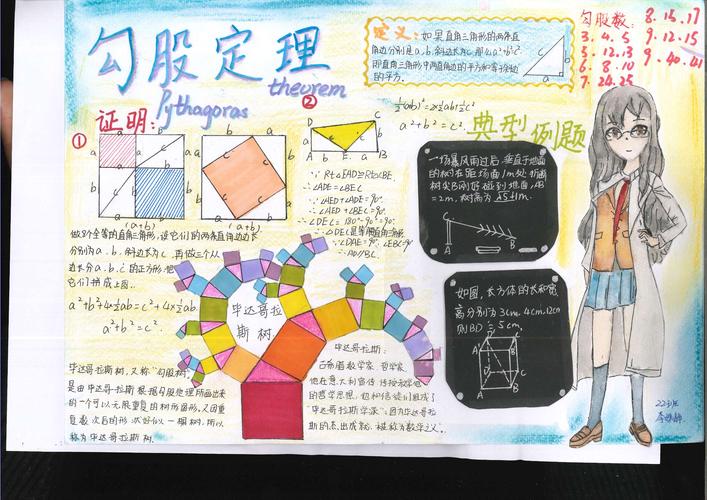 勾股定理
Pythagoras
theorem
定义:如果直角三角形的两条直
角边分别是a、b,斜边长为c,那么a²+b²=c².
即直角三角形中两直角边的平方和等于斜边
的平方。
勾股数:
3. 4. 5
5. 12. 13
6. 8. 10
7. 24. 25
8. 15. 17
9. 12. 15
9. 40. 41
证明:
①
(a+b)
(a+b)
做8个全等的直角三角形,设它们的两条直角边边长
分别为a、b,斜边长为c,再做三个从
边长分a、b、c的正方形,把
它们拼成上图..
a²+b²+4×½ab=c²+4×½ab.
a²+b²=c².
②
∵Rt△EAD≌Rt△CBE.
∴∠ADE=∠BEC
∵∠AED+∠ADE=90°
∴∠AED+∠BEC=90°.
∴∠DEC=180°-90°=90°.
∴△DEC是等腰直角三角形
∴AD//BC.
a²+b²=c².
典型例题
一场暴风雨过后,垂直于地面
的树在距场面1m处折断
树尖B恰好碰到地面,AB
=2m,树高为√5+1m.
A
B
如图,长方体的长和宽,
高分别为3cm,4cm,12cm
则BD=5cm.
毕达哥拉
斯树
毕达哥拉斯树,又称“勾股树”
是由毕达哥拉斯根据勾股定理所画出来
的一个可以无限重复的树形图形,又因重
复数次后的形状好似一棵树,所以
称为毕达哥拉斯树.
毕达哥拉斯:
古希腊数学家、哲学家.
他在意大利
的哲学思想,
“毕达哥拉斯学派”
22班